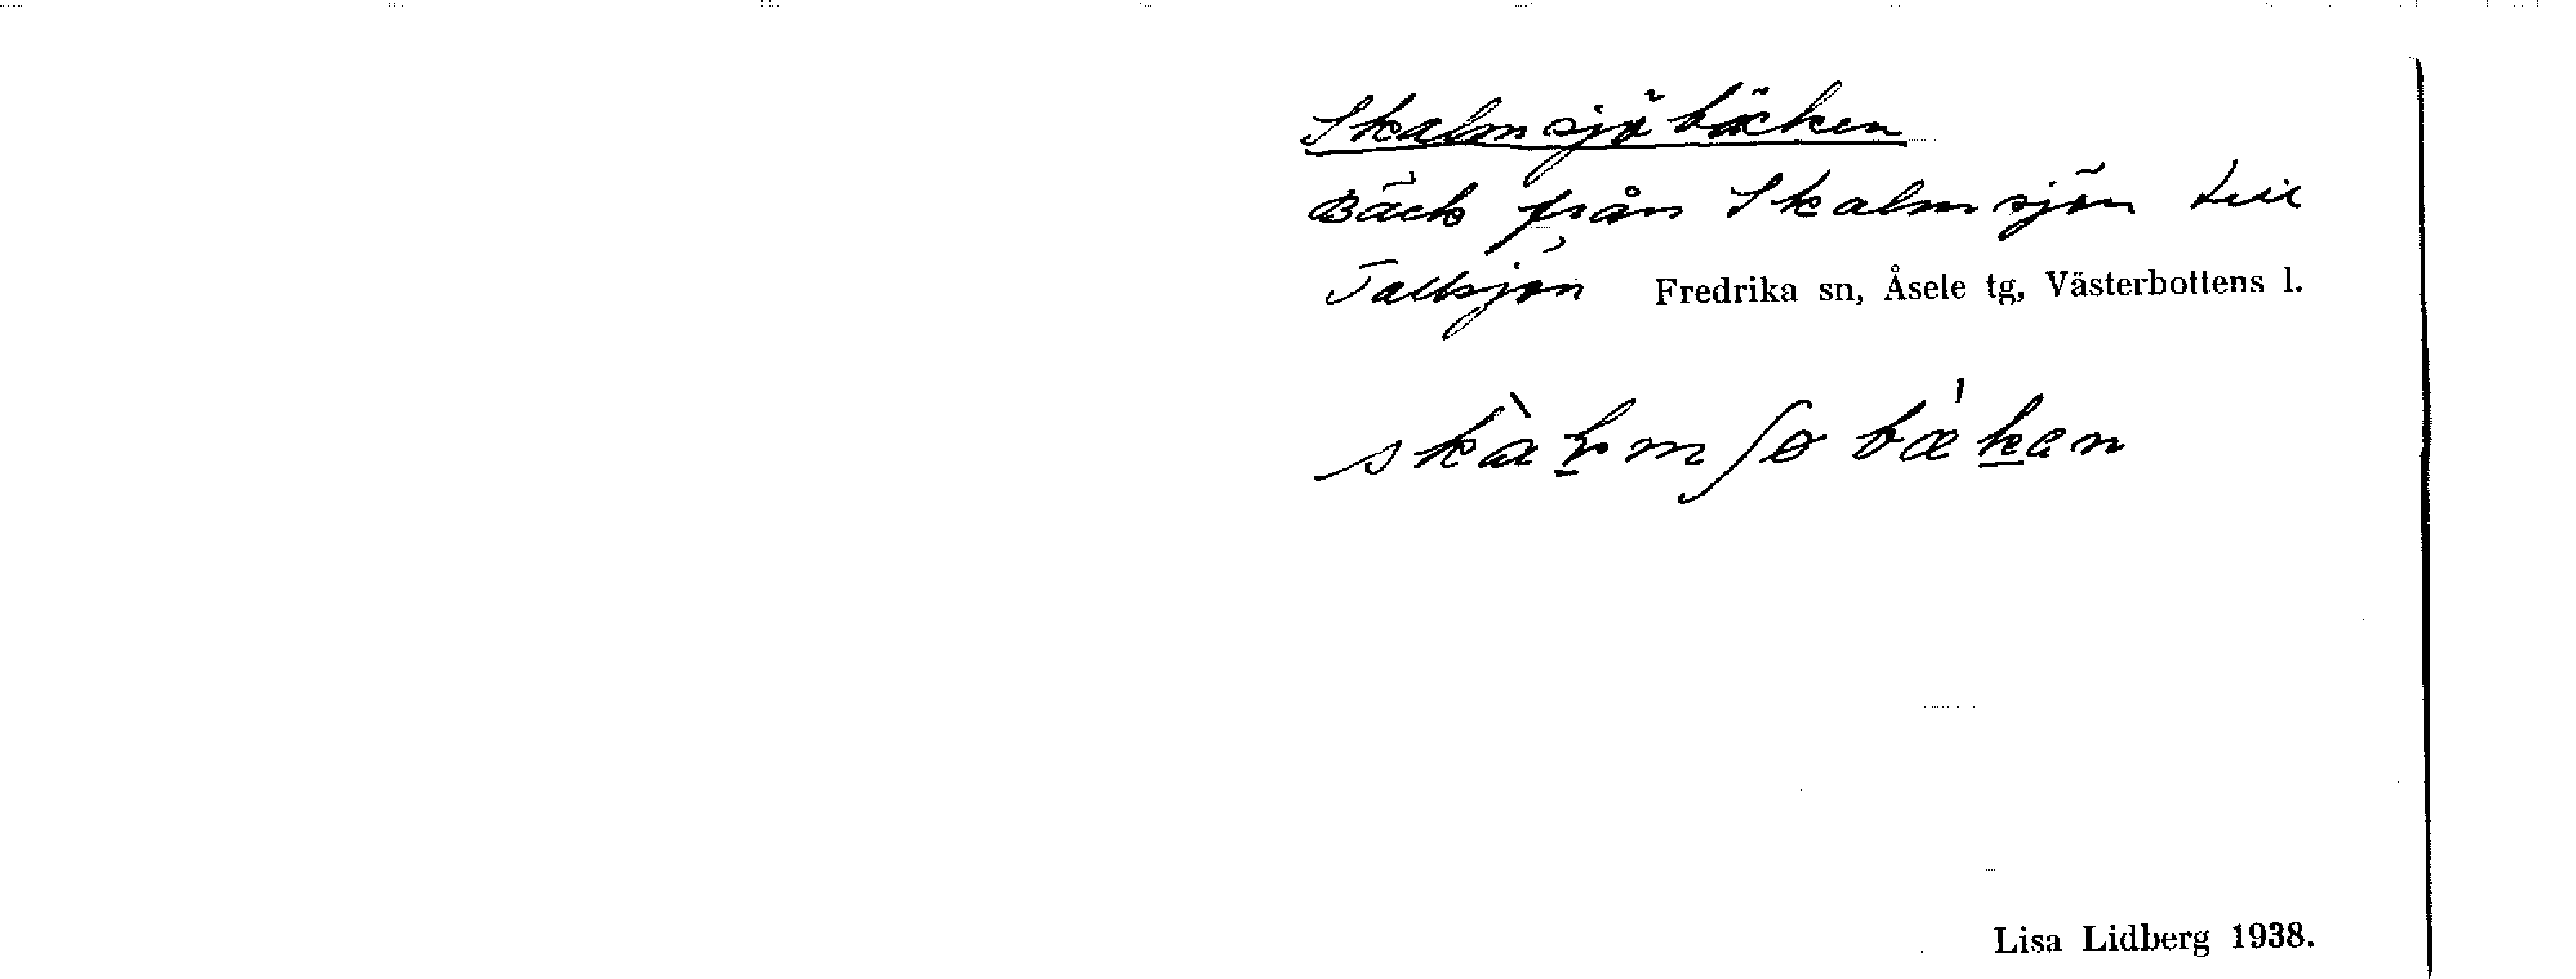 Skalmsjöbäcken
Bäck från Skalmsjön till
Tallsjön Fredrika sn, Åsele tg, Västerbottens l.
Lisa Lidberg 1938.